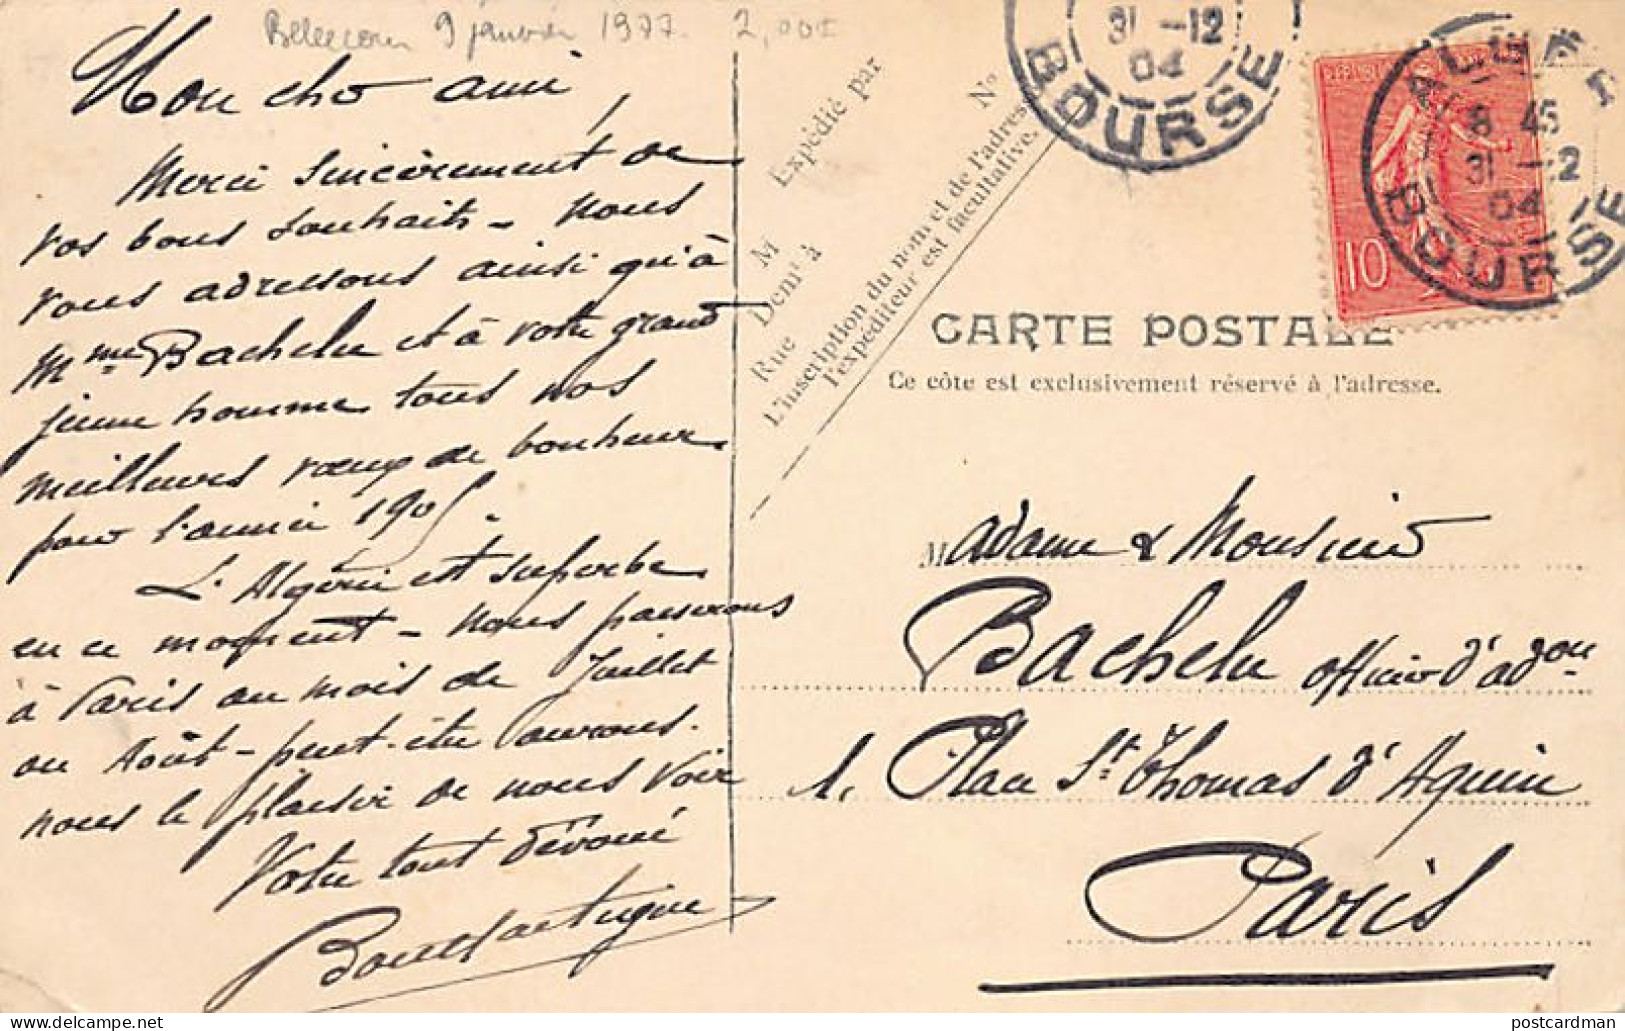 Bellecour 9 janvier 1977. 2,00F
Mon cher ami,
Merci sincèrement de
vos bons souhaits - nous
vous adressons ainsi qu'à
Mme Bachelu et à votre grand
jeune homme tous nos
meilleurs vœux de bonheur
pour l'année 1905.
L'Algérie est superbe
en ce moment - nous passerons
à Paris au mois de Juillet
ou Août - peut-être aurons
nous le plaisir de nous voir
Votre tout dévoué
Expédié par
M
Demt à
Rue
No
L'inscription du nom et de l'adresse
l'expéditeur est facultative.
31 -12
04
BOURSE
ALGER
8 45
31 -12
04
BOURSE
10
CARTE POSTALE
Ce côté est exclusivement réservé à l'adresse.
Madame & Monsieur
Bachelu officier d'adon
1, Place St Thomas d'Aquin
Paris
postcardman